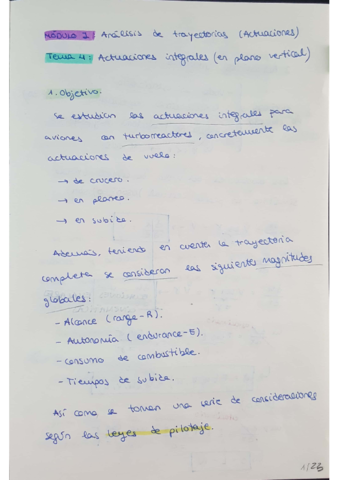 MÓDULO 1: Análisis de trayectorias (Actuaciones)
Tema 4: Actuaciones integrales (en plano vertical)
1. Objetivo.
Se estudian las actuaciones integrales para
aviones con turborreactores, concretamente las
actuaciones de vuelo:
→ de crucero.
→ en planeo.
→ en subida.
Además, teniendo en cuenta la trayectoria
completa se consideran las siguientes magnitudes
globales:
- Alcance (range-R).
- Autonomía (endurance-E).
- Consumo de combustible.
- Tiempos de subida.
Así como se toman una serie de consideraciones
según las leyes de pilotaje.
1/23